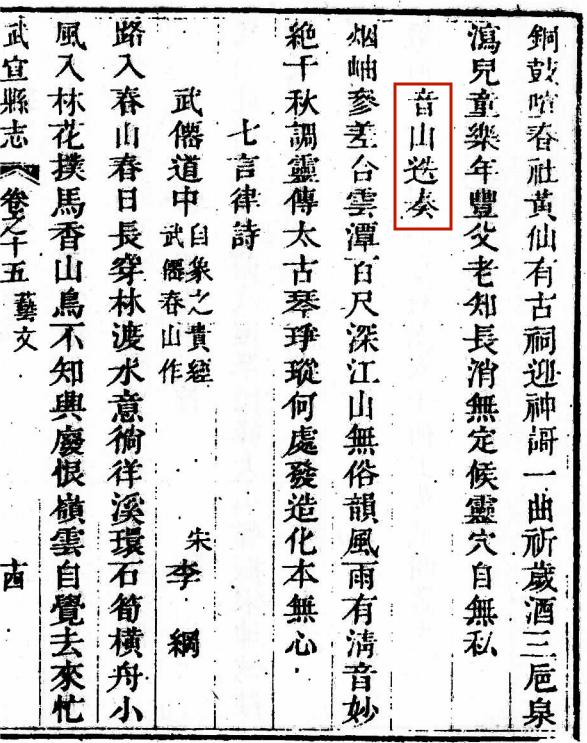 銅鼓喧春社黃仙有古祠迎神謌一曲祈歲酒三巵泉
瀉兒童樂年豐父老知長消無定候靈穴自無私
音山迭奏
烟岫參差合雲潭百尺深江山無俗韻風雨有淸音妙
絶千秋調靈傳太古琴琤瑽何處發造化本無心
七言律詩
武僊道中 自象之貴經武僊春山作 宋 李綱
路入春山春日長穿林渡水意徜徉溪環石筍橫舟小
風入林花撲馬香山鳥不知興廢恨嶺雲自覺去來忙
武宣縣志 卷之十五 藝文 十四